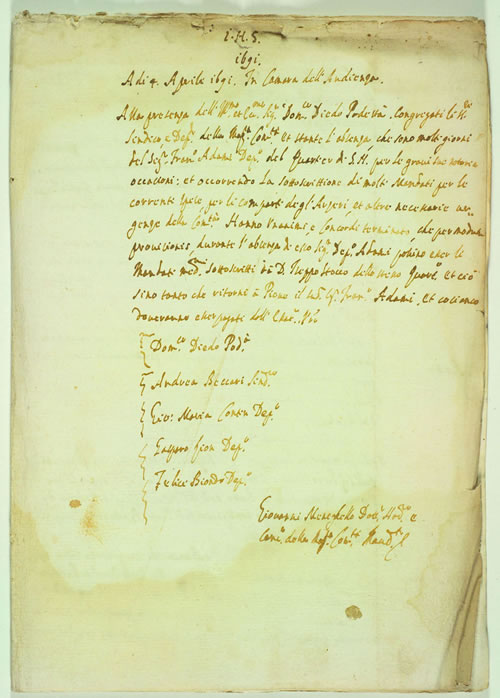 I. H. S.
1691.
A di 4. Aprile 1691. In Camera dell'Audienza.
Alla presenza dell' Ill.mo et Ecc.mo Sig.r Dom.co Diedo Podestà. Congregati li
Sindico, e Dep.ti della Mag.ca Com.tà et stante l'absenza, che sono molti giorni
del Sig.r Fran.co Adami Dep.o del Quartier di S. H. per le gravi sue notorie
occasioni: et occorrendo la sottoscrittione di molti Mandati per le
correnti spese, per le comparte degl'Argeri, et altre necessarie ur-
genze della Com.tà Hanno unanimi, e Concordi terminato, che per modum
provisionis, durante l'absenza di esso Sig.r Dep.o Adami possino esser li
Mandati med.mi sottoscritti dello stesso Quart.o Et ciò
sino tanto che ritorni il Sig.r Fran.co Adami, Et così
doveranno esser pagati dall'
Dom.co Diedo Pod.à
Andrea Beccari Sind.co
Gio: Maria Contin Dep.o
Gasparo Dep.o
Felice Biondo Dep.o
Giovanni Menechello Dott.r Nod.o e
Canc. della Mag.ca Com.tà